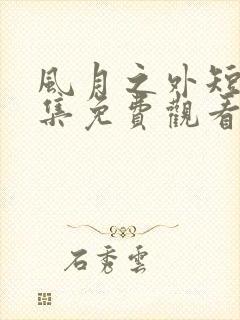 風月之外短
集免費觀看
石秀雲